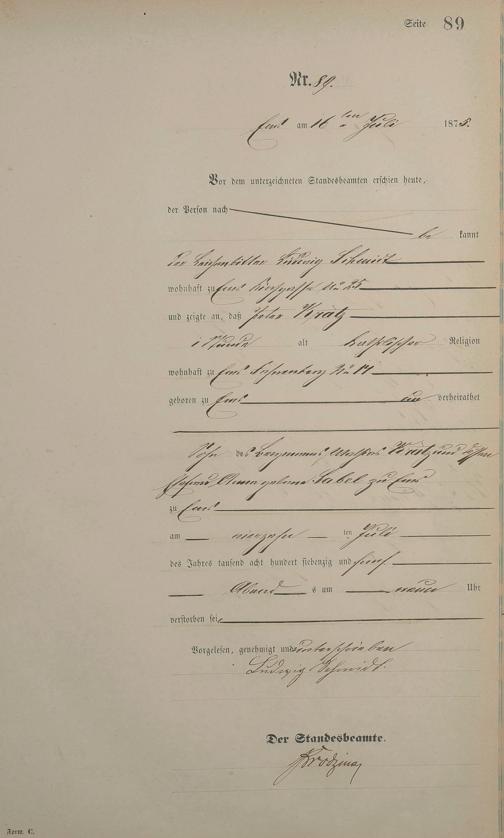 Seite 89
Nr. 89.
Ems am 16ten Juli 1875.
Vor dem unterzeichneten Standesbeamten erschien heute,
der Person nach
be kannt
der Ludwig Schmidt
wohnhaft zu Ems No 25
und zeigte an, daß Peter Kratz
alt katholischer Religion
wohnhaft zu Ems No 11
geboren zu Ems un verheirathet
Sohn des Bergmanns Mathias Kratz und dessen
Ehefrau geborne Sabel zu Ems
zu Ems
am vierzehn ten Juli
des Jahres tausend acht hundert siebenzig und fünf
Abend s um neun Uhr
verstorben sei.
Vorgelesen, genehmigt und unterschrieben
Ludwig Schmidt.
Der Standesbeamte.
Form. C.